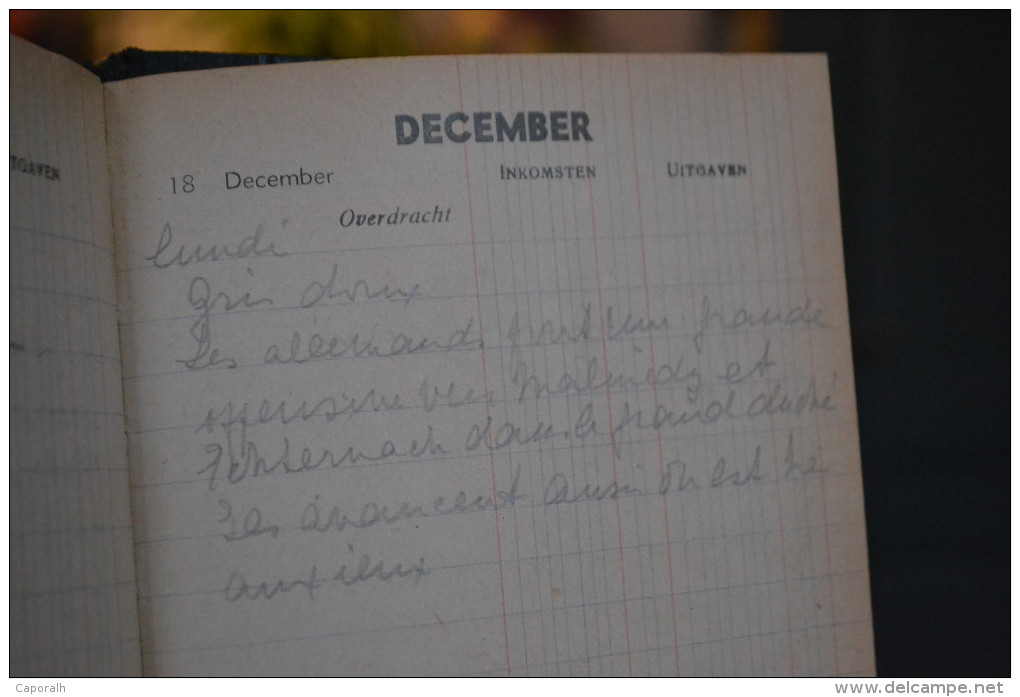 TGAVEN
DECEMBER
18 December INKOMSTEN UITGAVEN
Overdracht
lundi
Gris doux
Les allemands font une grande
offensive vers Malmédy et
Echternach dans le grand duché
Ils avancent aussi on est très
anxieux
Caporalh
www.delcampe.net